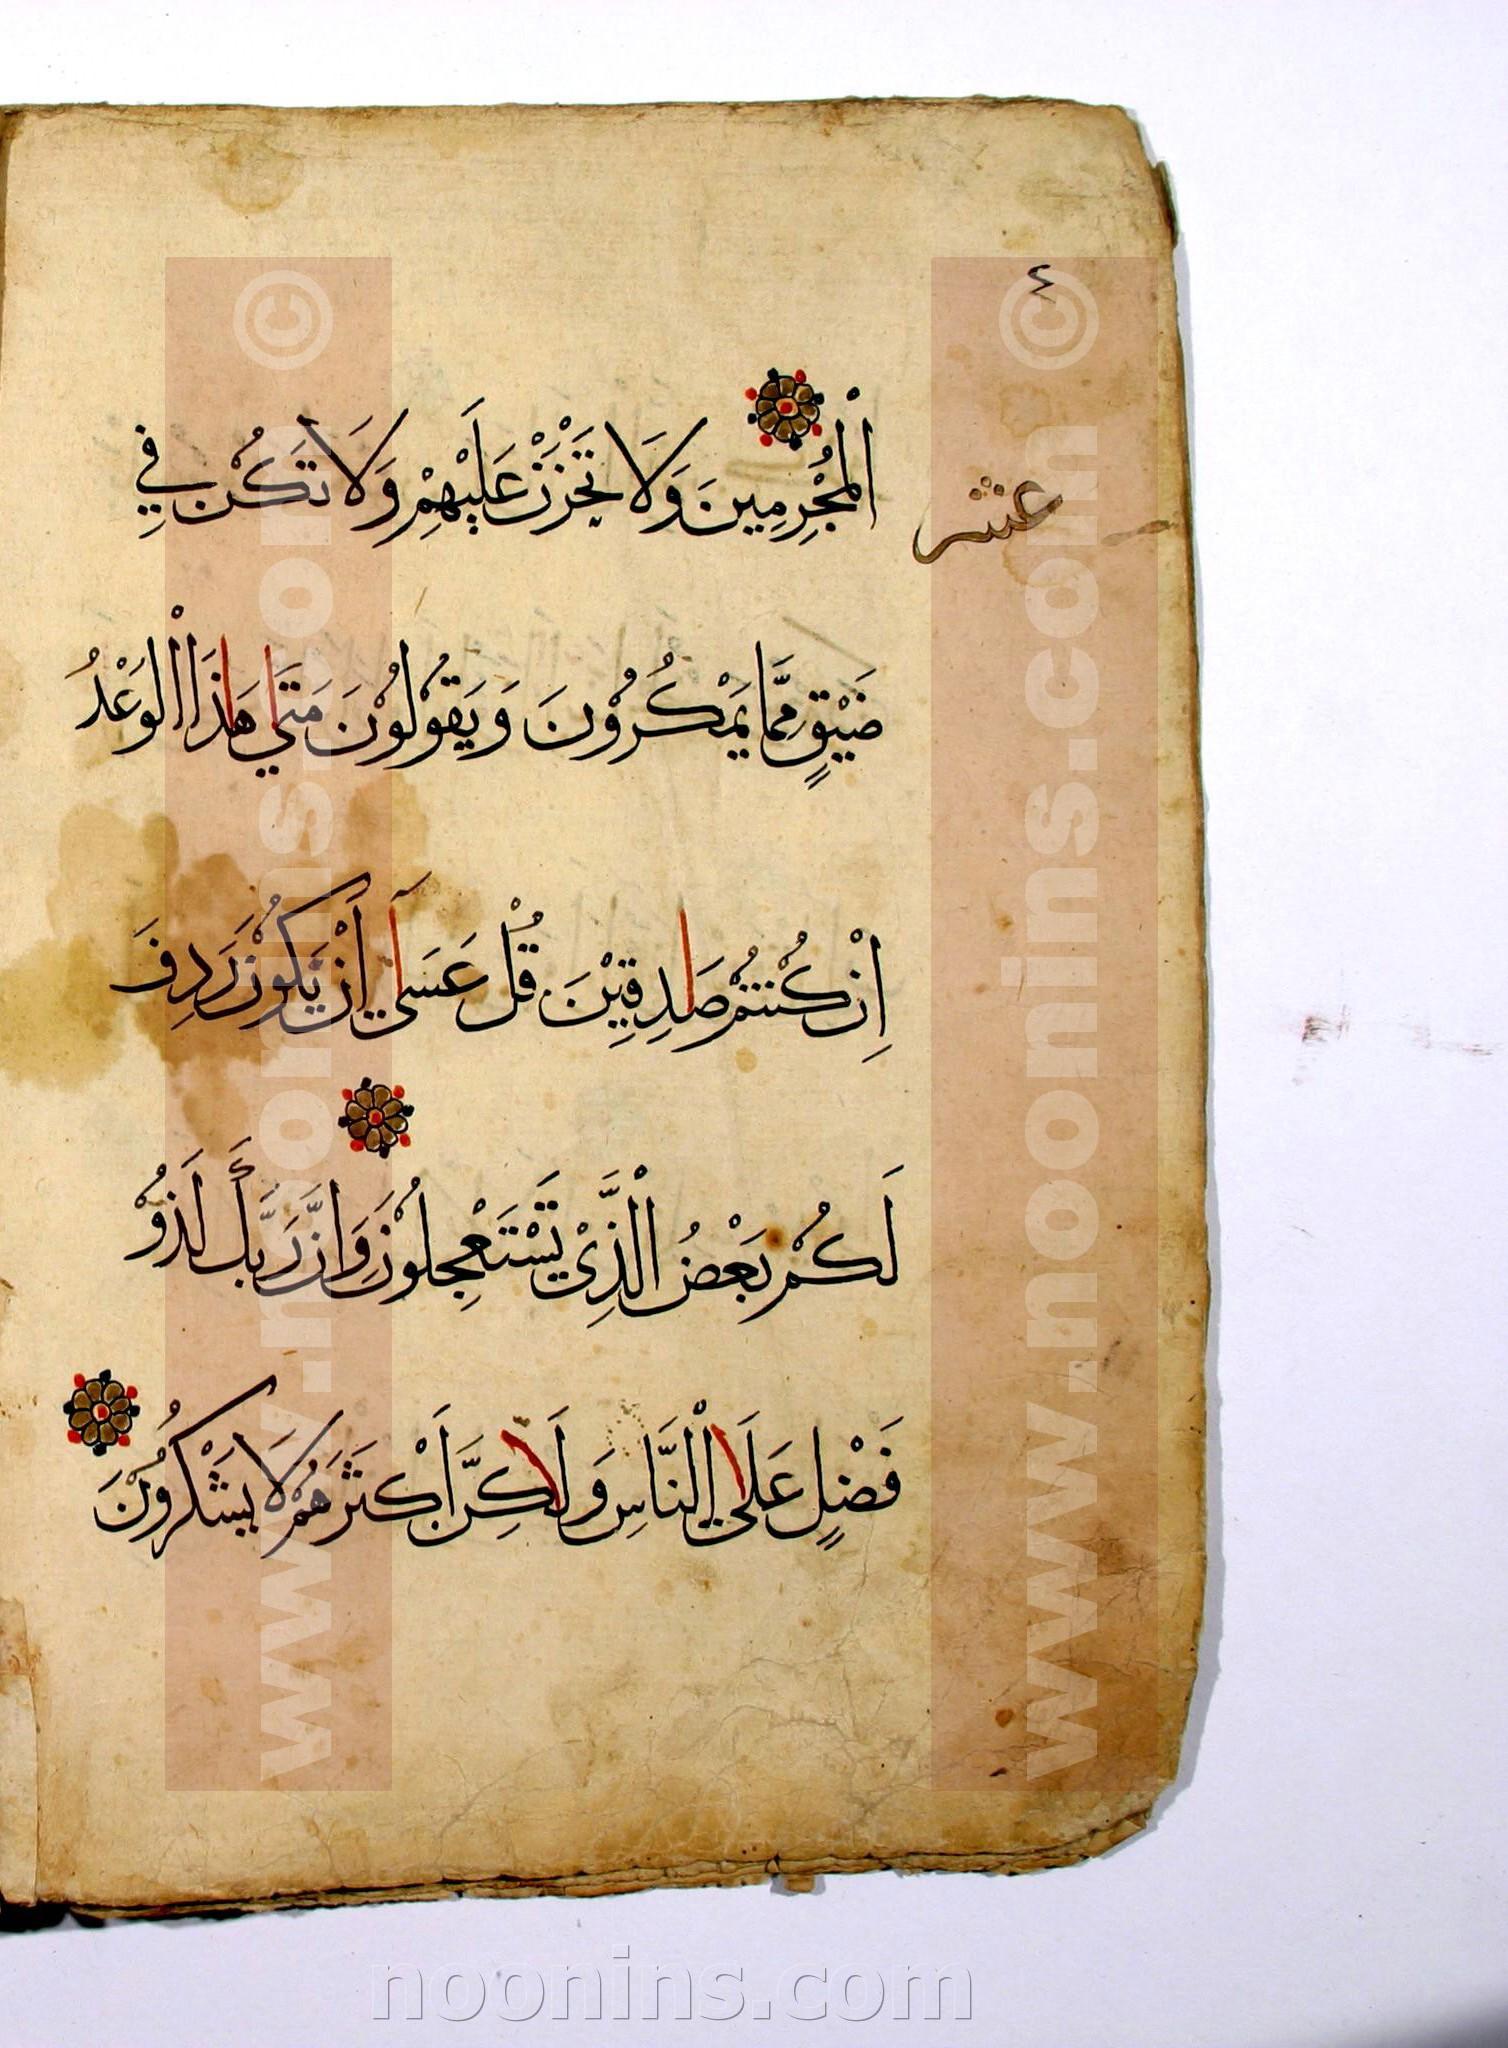 ٤
الْمُجْرِمِينَ وَلَا تَحْزَنْ عَلَيْهِمْ وَلَا تَكُنْ فِي
عشر
ضَيْقٍ مِمَّا يَمْكُرُوْنَ وَيَقُوْلُوْنَ مَتَى هَاذَا الْوَعْدُ
اِنْ كُنْتُمْ صَادِقِيْنَ قُلْ عَسَى اَنْ يَكُوْنَ رَدِفَ
لَكُمْ بَعْضُ الَّذِيْ تَسْتَعْجِلُوْنَ وَاِنَّ رَبَّكَ لَذُوْ
فَضْلٍ عَلَى النَّاسِ وَلَاكِنَّ اَكْثَرَهُمْ لَا يَشْكُرُوْنَ
www.noonins.com ©
www.noonins.com ©
noonins.com